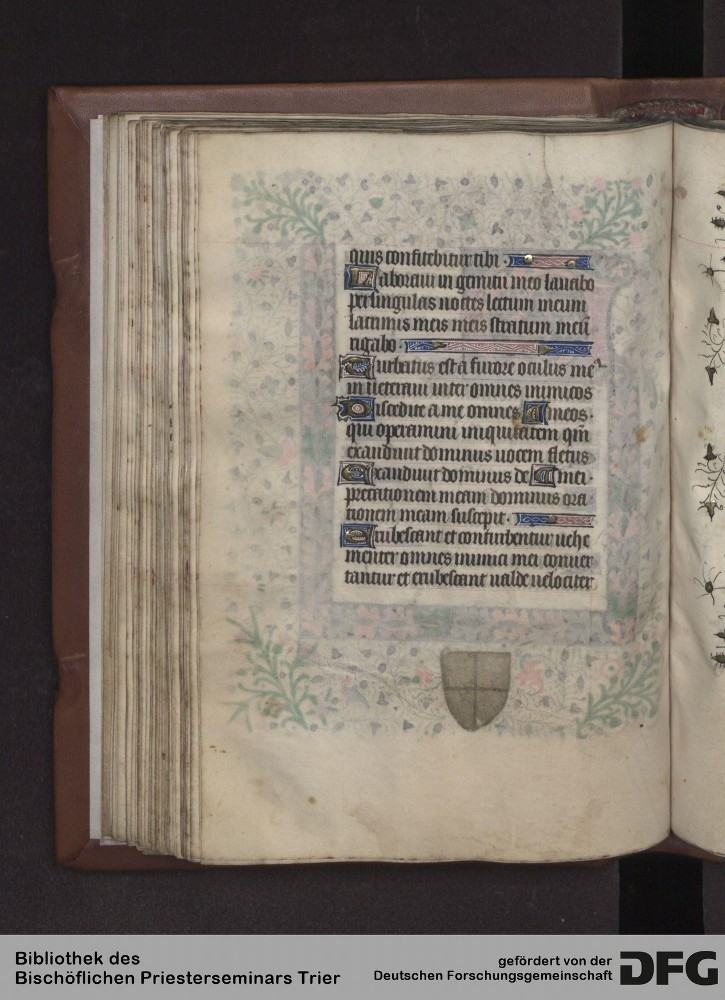 quis confitebitur tibi ·
Laboraui in gemitu meo lauabo
per singulas noctes lectum meum
lacrimis meis meis stratum meū
rigabo ·
Turbatus est a furore oculus me
inueteraui inter omnes inimicos
Discedite a me omnes meos ·
qui operamini iniquitatem qm̄
exaudiuit dominus uocem fletus
Exaudiuit dominus de mei ·
precationem meam dominus ora
tionem meam suscepit ·
Erubescant et conturbentur uehe
menter omnes inimici mei conuer
tantur et erubescant ualde uelociter
Bibliothek des
Bischöflichen Priesterseminars Trier
gefördert von der
Deutschen Forschungsgemeinschaft
DFG